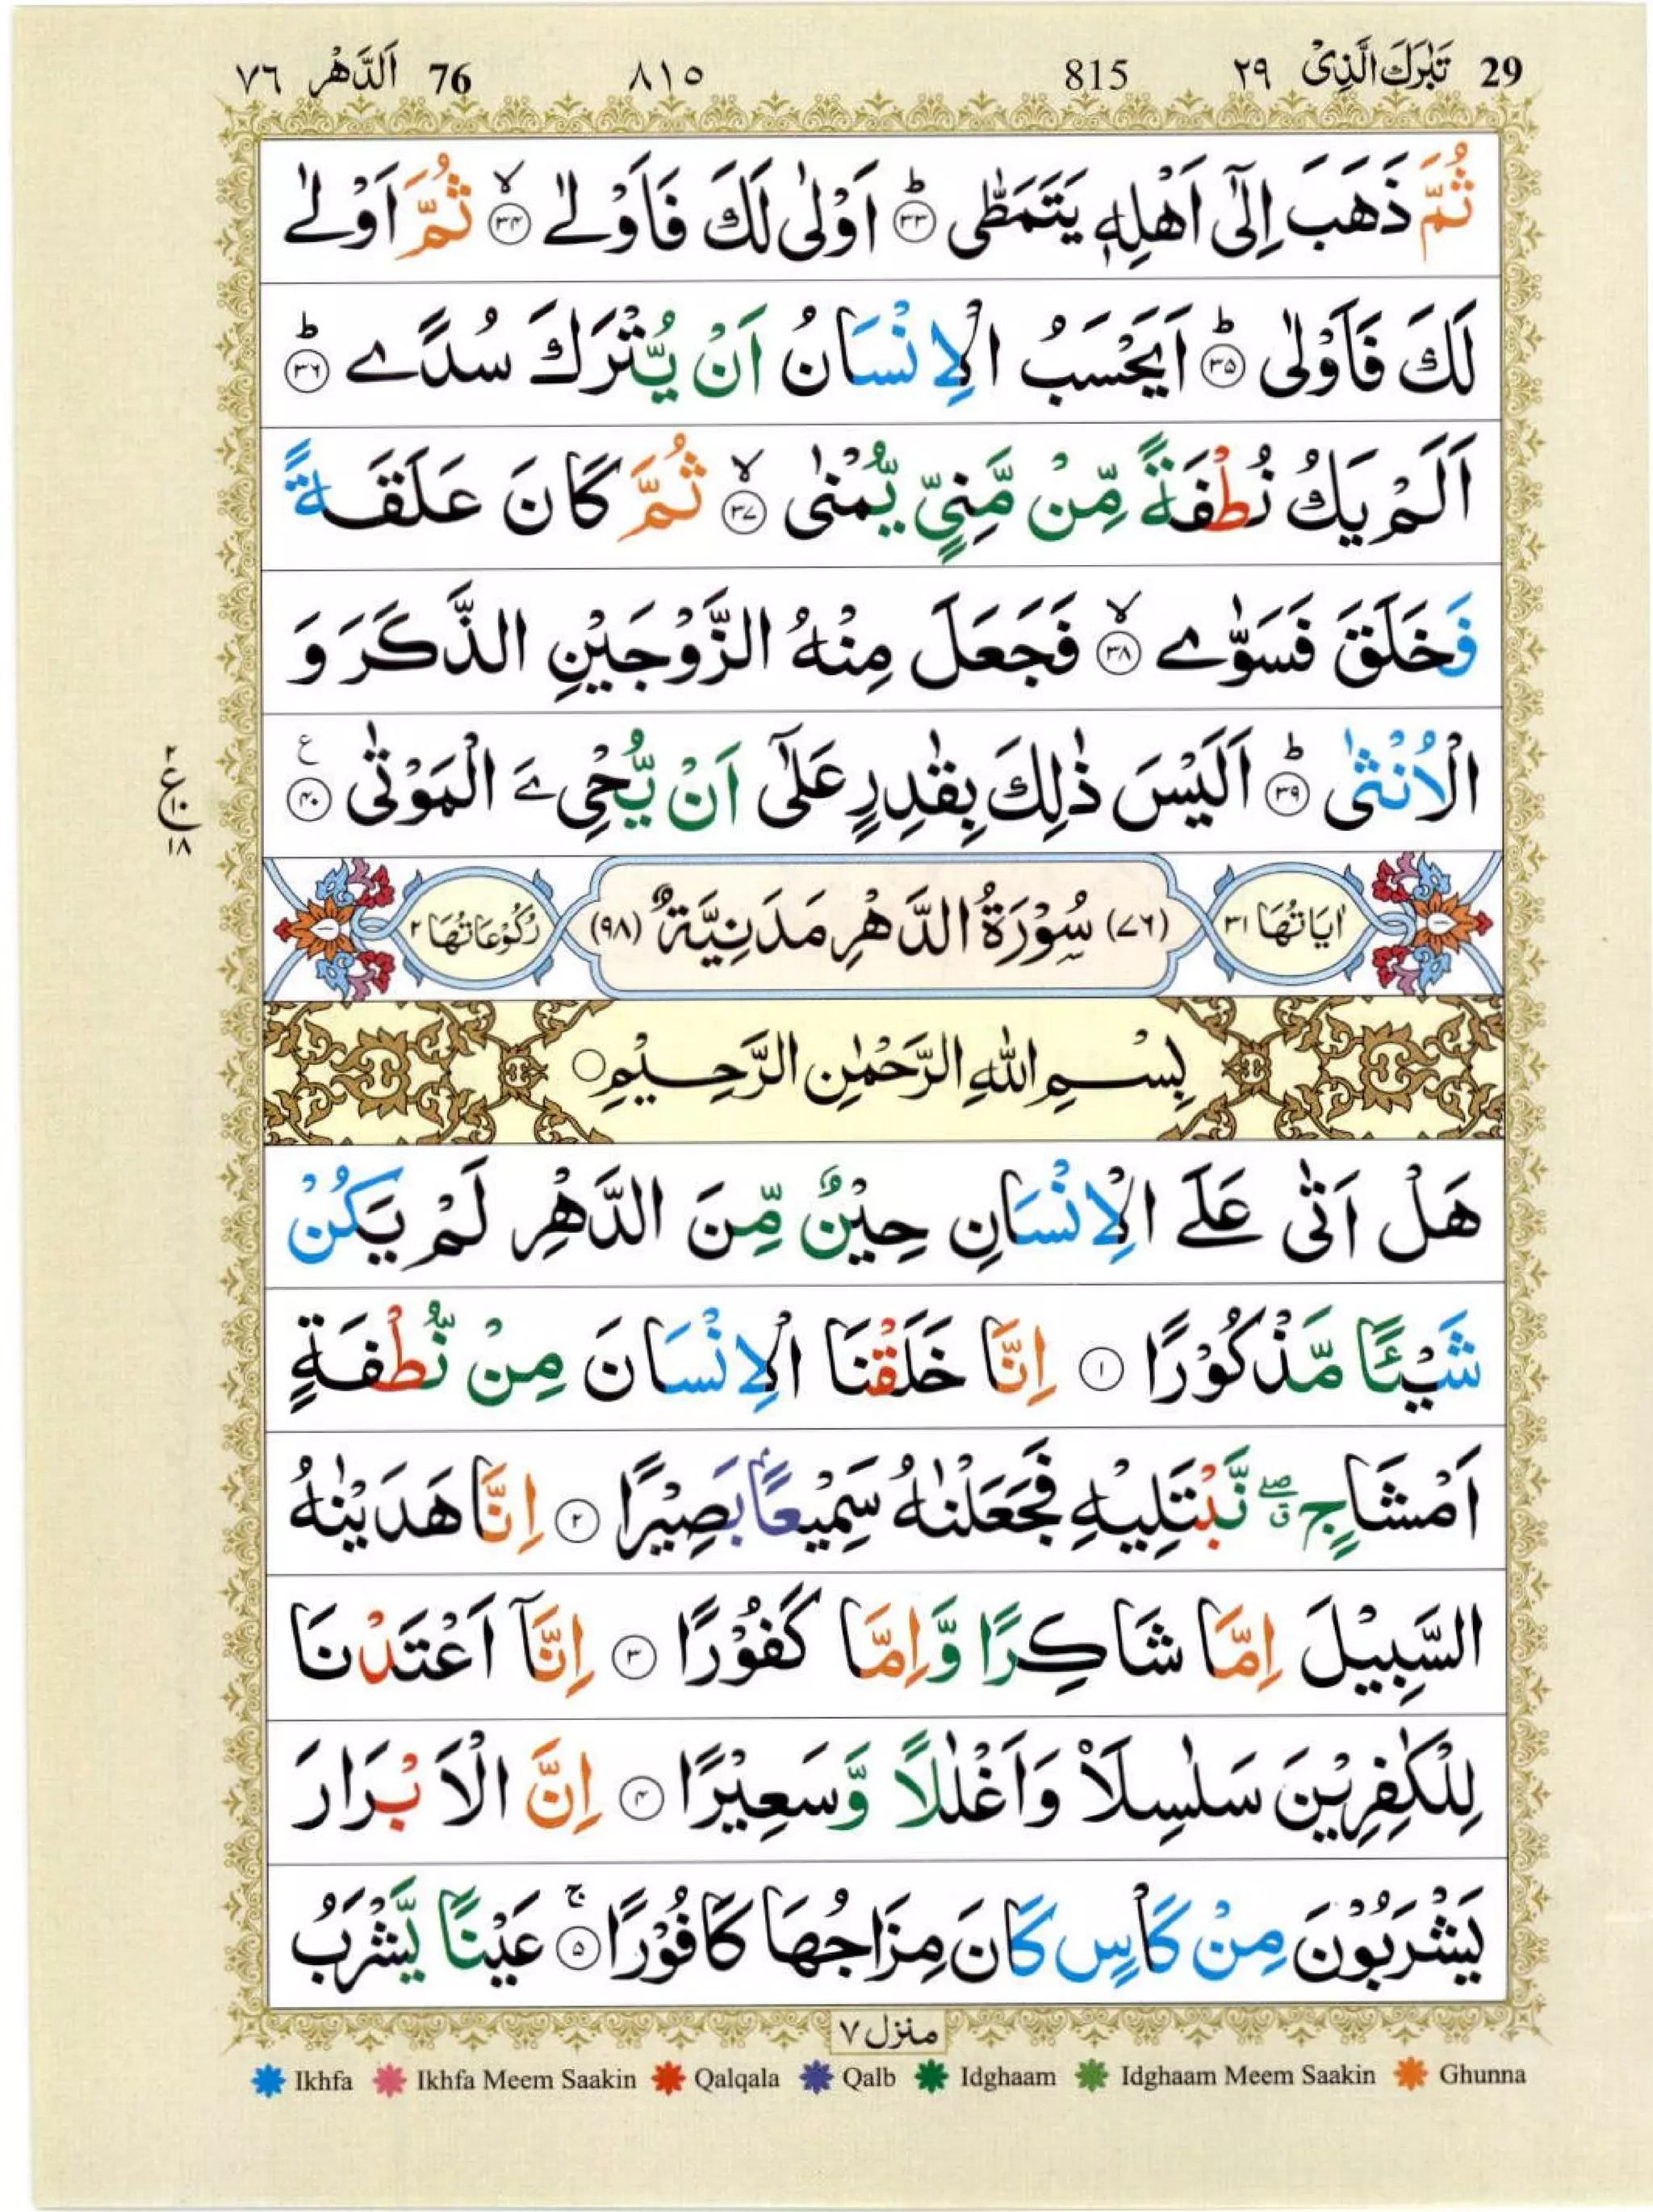 29 تَبٰرَكَ الَّذِیْ ٢٩ 815 ٨١٥ 76 اَلدَّهْر ٧٦
ثُمَّ ذَهَبَ اِلٰۤى اَهْلِهٖ یَتَمَطّٰى ؕ﴿۳۳﴾ اَوْلٰى لَكَ فَاَوْلٰے ۙ﴿۳۴﴾ ثُمَّ اَوْلٰے
لَكَ فَاَوْلٰى ؕ﴿۳۵﴾ اَیَحْسَبُ الْاِنْسَانُ اَنْ یُّتْرَكَ سُدًے ؕ﴿۳۶﴾
اَلَمْ یَكُ نُطْفَةً مِّنْ مَّنِیٍّ یُّمْنٰى ۙ﴿۳۷﴾ ثُمَّ كَانَ عَلَقَةً
فَخَلَقَ فَسَوّٰے ۙ﴿۳۸﴾ فَجَعَلَ مِنْهُ الزَّوْجَیْنِ الذَّكَرَ وَ
الْاُنْثٰى ؕ﴿۳۹﴾ اَلَیْسَ ذٰلِكَ بِقٰدِرٍ عَلٰۤى اَنْ یُّحْیِۦَ الْمَوْتٰى ﴿۴۰﴾ ع
٢ ع ١٠ ١٨
اٰیَاتُهَا ٣١ (٧٦) سُوْرَةُ الدَّهْرِ مَدَنِیَّةٌ (٩٨) رُكُوْعَاتُهَا ٢
بِسْمِ اللّٰهِ الرَّحْمٰنِ الرَّحِیْمِ○
هَلْ اَتٰى عَلَے الْاِنْسَانِ حِیْنٌ مِّنَ الدَّهْرِ لَمْ یَكُنْ
شَیْـًٔا مَّذْكُوْرًا ﴿۱﴾ اِنَّا خَلَقْنَا الْاِنْسَانَ مِنْ نُّطْفَةٍ
اَمْشَاجٍ ۖق نَّبْتَلِیْهِ فَجَعَلْنٰهُ سَمِیْعًۢا بَصِیْرًا ﴿۲﴾ اِنَّا هَدَیْنٰهُ
السَّبِیْلَ اِمَّا شَاكِرًا وَّاِمَّا كَفُوْرًا ﴿۳﴾ اِنَّاۤ اَعْتَدْنَا
لِلْكٰفِرِیْنَ سَلٰسِلَا۠ وَاَغْلٰلًا وَّسَعِیْرًا ﴿۴﴾ اِنَّ الْاَبْرَارَ
یَشْرَبُوْنَ مِنْ كَاْسٍ كَانَ مِزَاجُهَا كَافُوْرًا ۚ﴿۵﴾ عَیْنًا یَّشْرَبُ
منزل ٧
Ikhfa Ikhfa Meem Saakin Qalqala Qalb Idghaam Idghaam Meem Saakin Ghunna